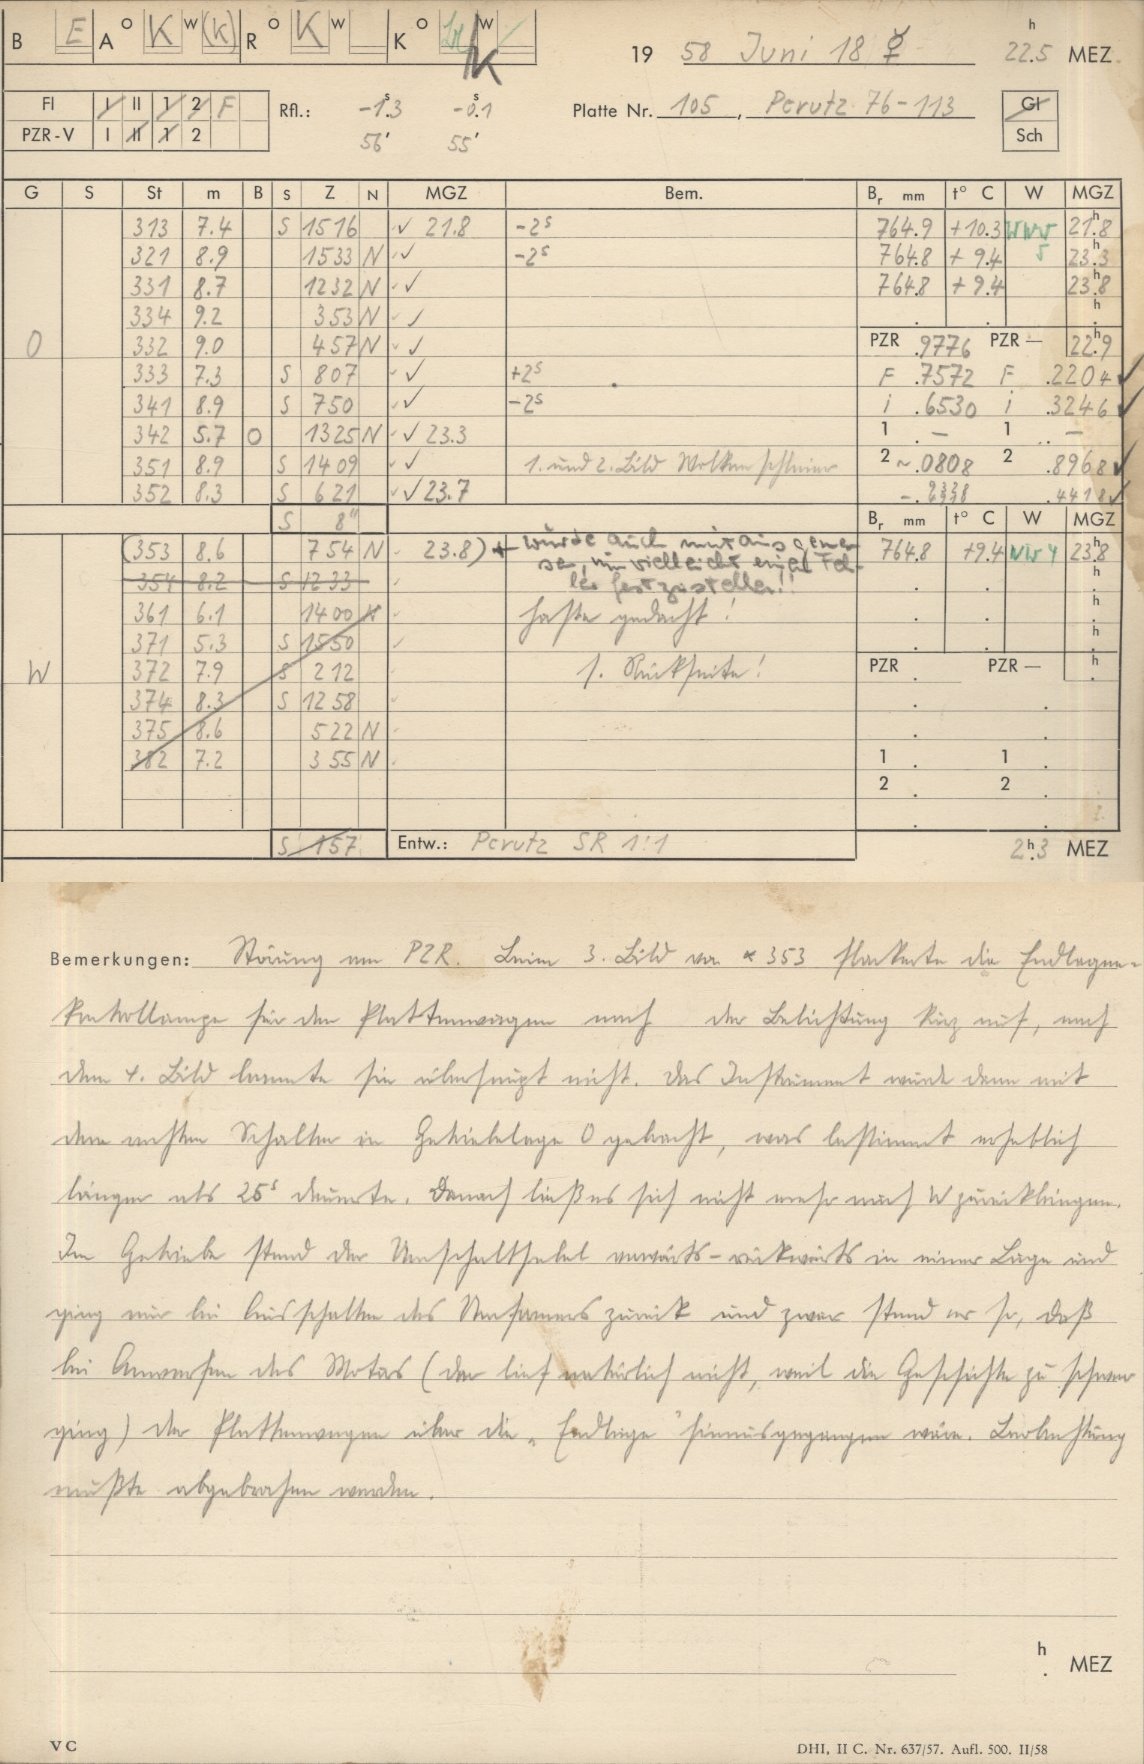 B E A O K W (K) R O K W K O W K
19 58 Juni 18 ☿ 22.5 h MEZ
FI I II 1 2 F Rfl.: -1.3 s -0.1 s Platte Nr. 105, Perutz 76-113 Gl
PZR-V I II 1 2 56' 55' Sch
G S St m B S Z N MGZ Bem. Br mm t° C W MGZ
313 7.4 S 1516 ✓ 21.8 -2s 764.9 +10.3 WNW 21.8 h
321 8.9 1533 N ✓ -2s 764.8 + 9.4 5 23.3 h
331 8.7 1232 N ✓ 764.8 + 9.4 23.8 h
334 9.2 353 N ✓ h
O 332 9.0 457 N ✓ PZR .9776 PZR — 22.9 h
333 7.3 S 807 ✓ +2s F .7572 F .2204 ✓
341 8.9 S 750 ✓ -2s i .6530 i .3246 ✓
342 5.7 O 1325 N ✓ 23.3 1 . — 1 . —
351 8.9 S 1409 ✓ 1. und 2. Bild Wolkenschleier 2 ~.0808 2 .8968 ✓
352 8.3 S 621 ✓ 23.7 .4418 ✓
S 8" Br mm t° C W MGZ
(353 8.6 754 N 23.8) + würde auch mit ausgemes- 764.8 +9.4 NW 4 23.8 h
354 8.2 S 1233 sen, um vielleicht einen Feh- h
ler festzustellen!!
361 6.1 1400 N haste gedacht! h
371 5.3 S 1550 h
W 372 7.9 S 212 s. Rückseite! PZR . PZR — h
374 8.3 S 1258
375 8.6 522 N
382 7.2 355 N 1 . 1 .
2 . 2 .
S 157 Entw.: Perutz SR 1:1 2.3 h MEZ
Bemerkungen: Störung am PZR. Beim 3. Bild von * 353 flackerte die Endlagen-
kontrollampe für den Plattenwagen nach der Belichtung kurz auf, nach
dem 4. Bild brannte sie überhaupt nicht. Das Instrument wurde dann mit
dem nächsten Schalten in Getriebelage O gebracht, was bestimmt erheblich
länger als 25s dauerte. Danach ließ es sich nicht mehr nach W zurückbringen.
Im Getriebe stand der Umschalthebel vorwärts-rückwärts in einer Lage und
ging nur bei Ausschalten des Umformers zurück und zwar stand er so, daß
bei Anwerfen des Motors (der lief natürlich nicht, weil die Geschichte zu schwer
ging) der Plattenwagen über die „Endlage" hinausgegangen wäre. Beobachtung
mußte abgebrochen werden.
h MEZ
VC DHI, II C. Nr. 637/57. Aufl. 500. II/58